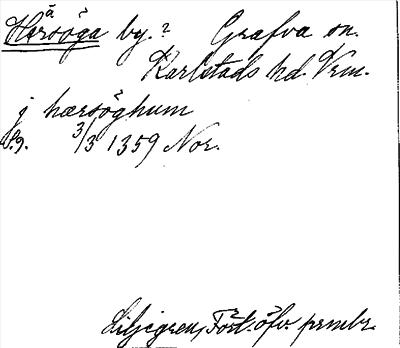 Hersöga by. ? Grafva sn.
Karlstads hd. Vrm.
j hærsöghum
S.g. 3/3 1359 Nor.
Liljegren, Fört. öfv. prmbr.